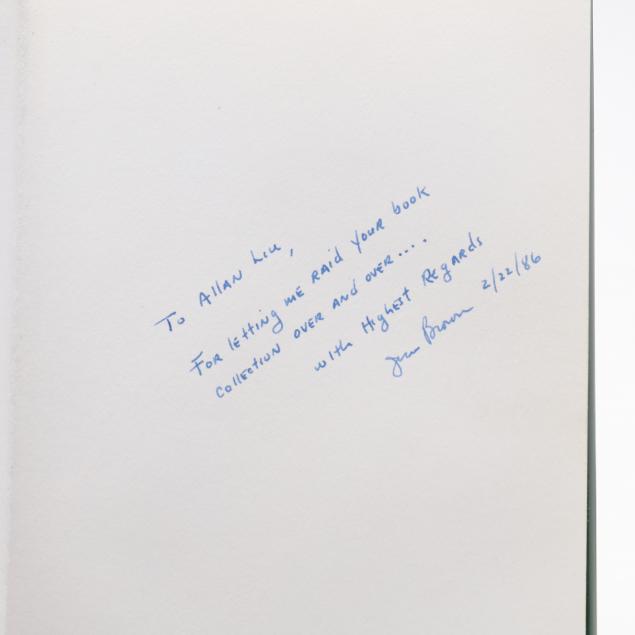 To Allan Liu,
For letting me raid your book
collection over and over....
with Highest Regards
Jim Brown 2/22/86